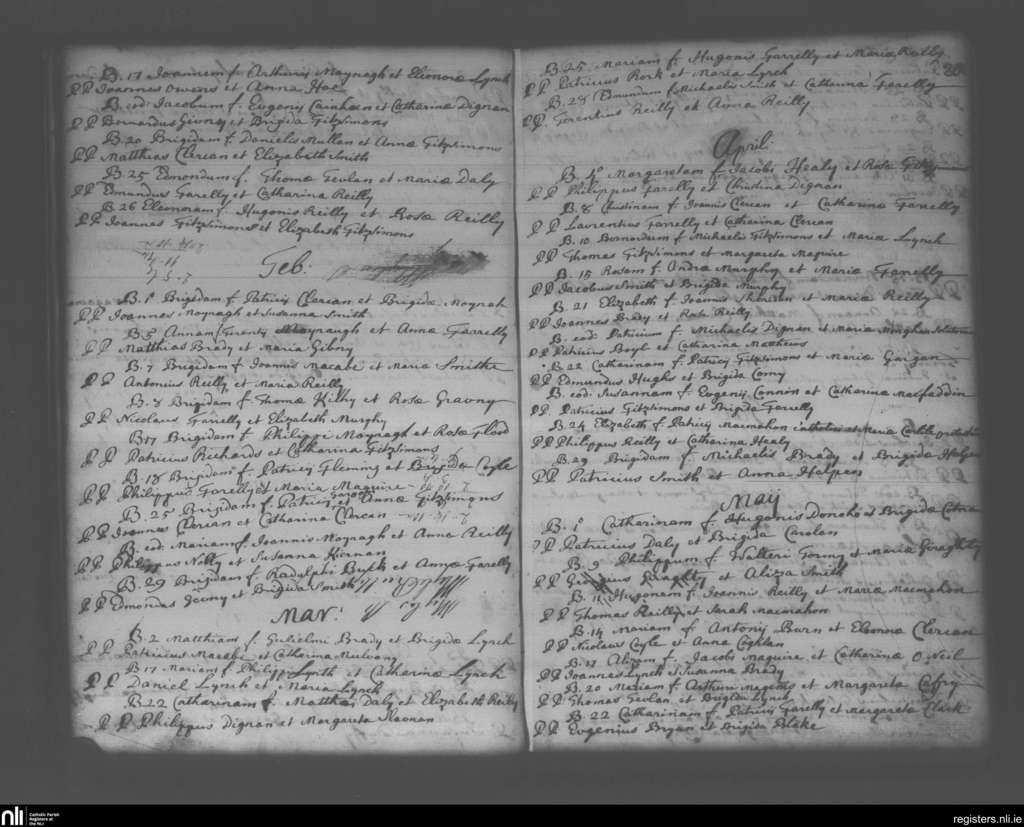 B. 17 Joannem f. Arthuris Moynagh et Elionoræ Lynch
PP Joannes Owens et Anna Hoe
B. eod. Jacobum f. Eugeny et Catharina Dignan
PP Bernardus et Brigida Fitzsimons
B. 20 Brigidam f. Danielis Mullan et Annæ Fitzsimons
PP Matthias Clercan et Elizabeth Smith
B. 25 Edmondum f. Thomæ Tevlan et Mariæ Daly
PP Edmundus Farelly et Catharina Reilly
B. 26 Eleonoram f. Hugonis Reilly et Rosæ Reilly
PP Joannes Fitzsimons et Elizabeth Fitzsimons
Feb.
B. 1º Brigidam f. Patricij Clercan et Brigida Moynah
PP Joannes Moynagh et Susanna Smith
B. 5 Annam f. Terenty Moynaugh et Anna Farrelly
PP Matthias Brady et Maria Gibny
B. 7 Brigidam f. Joannis Macabe et Maria Smithe
PP Antonius Reilly et Maria Reilly
B. 8 Brigidam f. Thomæ Kilhy et Rosæ Gravny
PP Nicolaus Farrelly et Elizabeth Murphy
B. 17 Brigidam f. Philippi Moynagh et Rosæ Flood
PP Patricius Richards et Catharina Fitzsimons
B. 18 Brigidam f. Patricij Fleming et Brigidæ Coyle
PP Philippus Farelly et Maria Maguire
B. 25 Brigidam f. Patricij et Annæ Fitzsimons
PP Joannes Clercan et Catharina Clercan
B. eod. Mariam f. Joannis Moynagh et Anna Reilly
PP Philippus Nolty et Susanna Kiernan
B. 29 Brigidam f. Radulphi et Annæ Farelly
PP Edmondus et Brigida Smith
Mar:
B. 2 Matthiam f. Gulielmi Brady et Brigida Lynch
PP Patricius Macabe et Catharina Mulvany
B. 17 Mariam f. Philippi Lynch et Catharinæ Lynch
PP Daniel Lynch et Maria Lynch
B. 22 Catharinam f. Matthæi Daly et Elizabeth Reilly
PP Philippus Dignan et Margareta Noonan
B. 25 Mariam f. Hugonis Farrelly et Mariæ Reilly
PP Patricius Rork et Maria Lynch
B. 28 Edmundum f. Michaelis Smith et Catharina Farelly
PP Terentius Reilly et Anna Reilly
April:
B. 1º Margaretam f. Jacobi Healy et Rosæ
PP Philippus Farelly et Christina Dignan
B. 8 Christinam f. Joannis Clercan et Catharinæ Farrelly
PP Laurentius Farrelly et Catharina Clercan
B. 10 Bernardum f. Michaelis Fitzsimons et Mariæ Lynch
PP Thomas Fitzsimons et Margareta Maguire
B. 15 Rosam f. Andræ Murphy et Mariæ Farrelly
PP Jacobus Smith et Brigida Murphy
B. 21 Elizabeth f. Joannis Sheridan et Maria Reilly
PP Joannes Brady et Rosa Reilly
B. eod. Patricium f. Michaelis Dignan et Maria
PP Patricius Boyl et Catharina Matthews
B. 22 Catharinam f. Patricij Fitzsimons et Mariæ Gargan
PP Edmundus Hughs et Brigida Corny
B. eod. Susannam f. Eugenij Connon et Catharina Macfaddin
PP. Patricius Fitzsimons et Brigida Farrelly
B. 24 Elizabeth f. Patricij Macmahon catholici et Maria Carlile protestan
PP Philippus Reilly et Catharina Healy
B. 29 Brigidam f. Michaelis Brady et Brigida
PP Patricius Smith et Anna Halpen
May
B. 1º Catharinam f. Hugonis Donoho et Brigida
PP Patricius Daly et Brigida Carolan
B. 9 Philippum f. Walteri Tormy et Maria Giraghty
PP Giraghty et Aliza Smith
B. 11 Hugonem f. Joannis Reilly et Mariæ Macmahon
PP Thomas Reilly et Sarah Macmahon
B. 14 Mariam f. Antonij Burn et Eleonoræ Clercan
PP Nicolaus Coyle et Anna Coghlan
B. 17 Alizam f. Jacobi Maguire et Catharinæ O Neil
PP Joannes Lynch et Susanna Brady
B. 20 Mariam f. Arthuri Maginis et Margareta Cafry
PP Thomas Tevlan et Brigida Lynch
B. 22 Catharinam f. Patricij Farelly et Margareta Clark
PP Eugenius Bryan et Brigida Blake
nli
Catholic Parish
Registers at
the NLI
registers.nli.ie